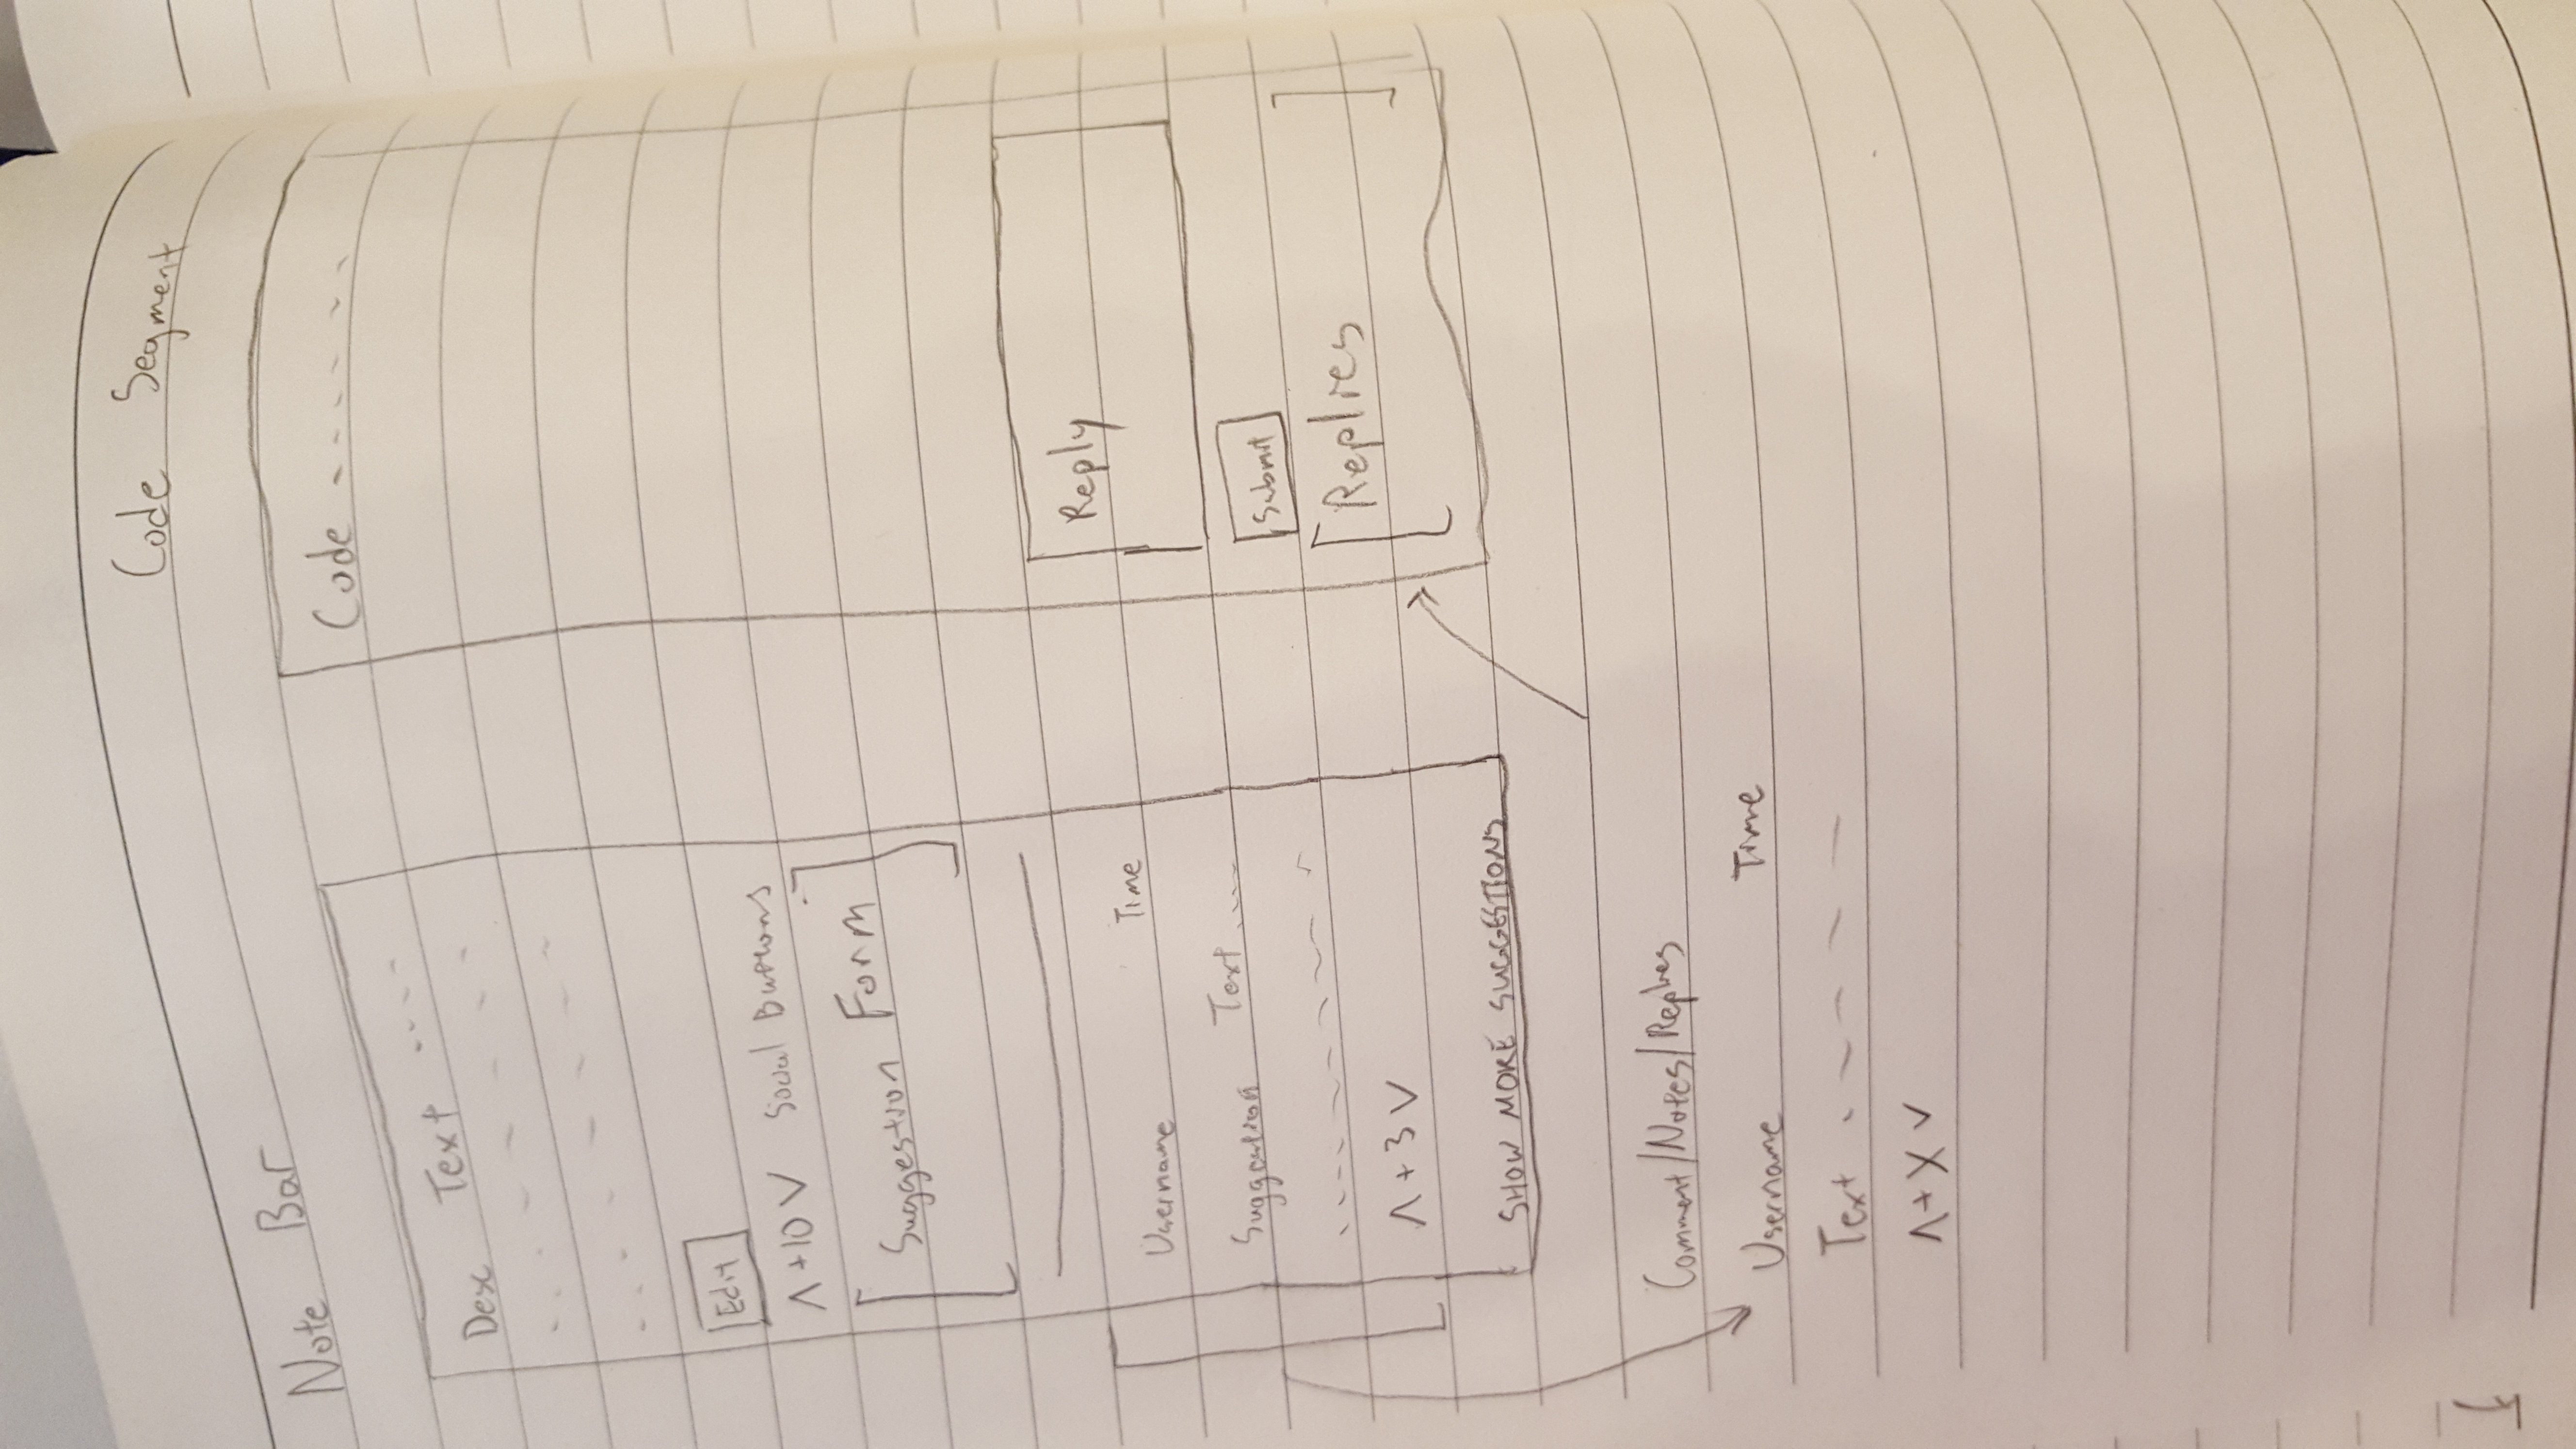 Code Segment
Note Bar
Desc Text ....
Edit
Λ +10 V Social Buttons
[Suggestion Form]
Username Time
Suggestion Text ....
Λ + 3 V
SHOW MORE SUGGESTIONS
Code - - - - - -
Reply
Submit
[Replies]
Comment/Notes/Replies
Username Time
Text - - - - -
Λ + X V